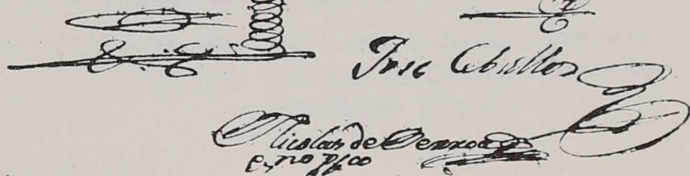 Jose Ceballos
Nicolas de Herrera
esno pco